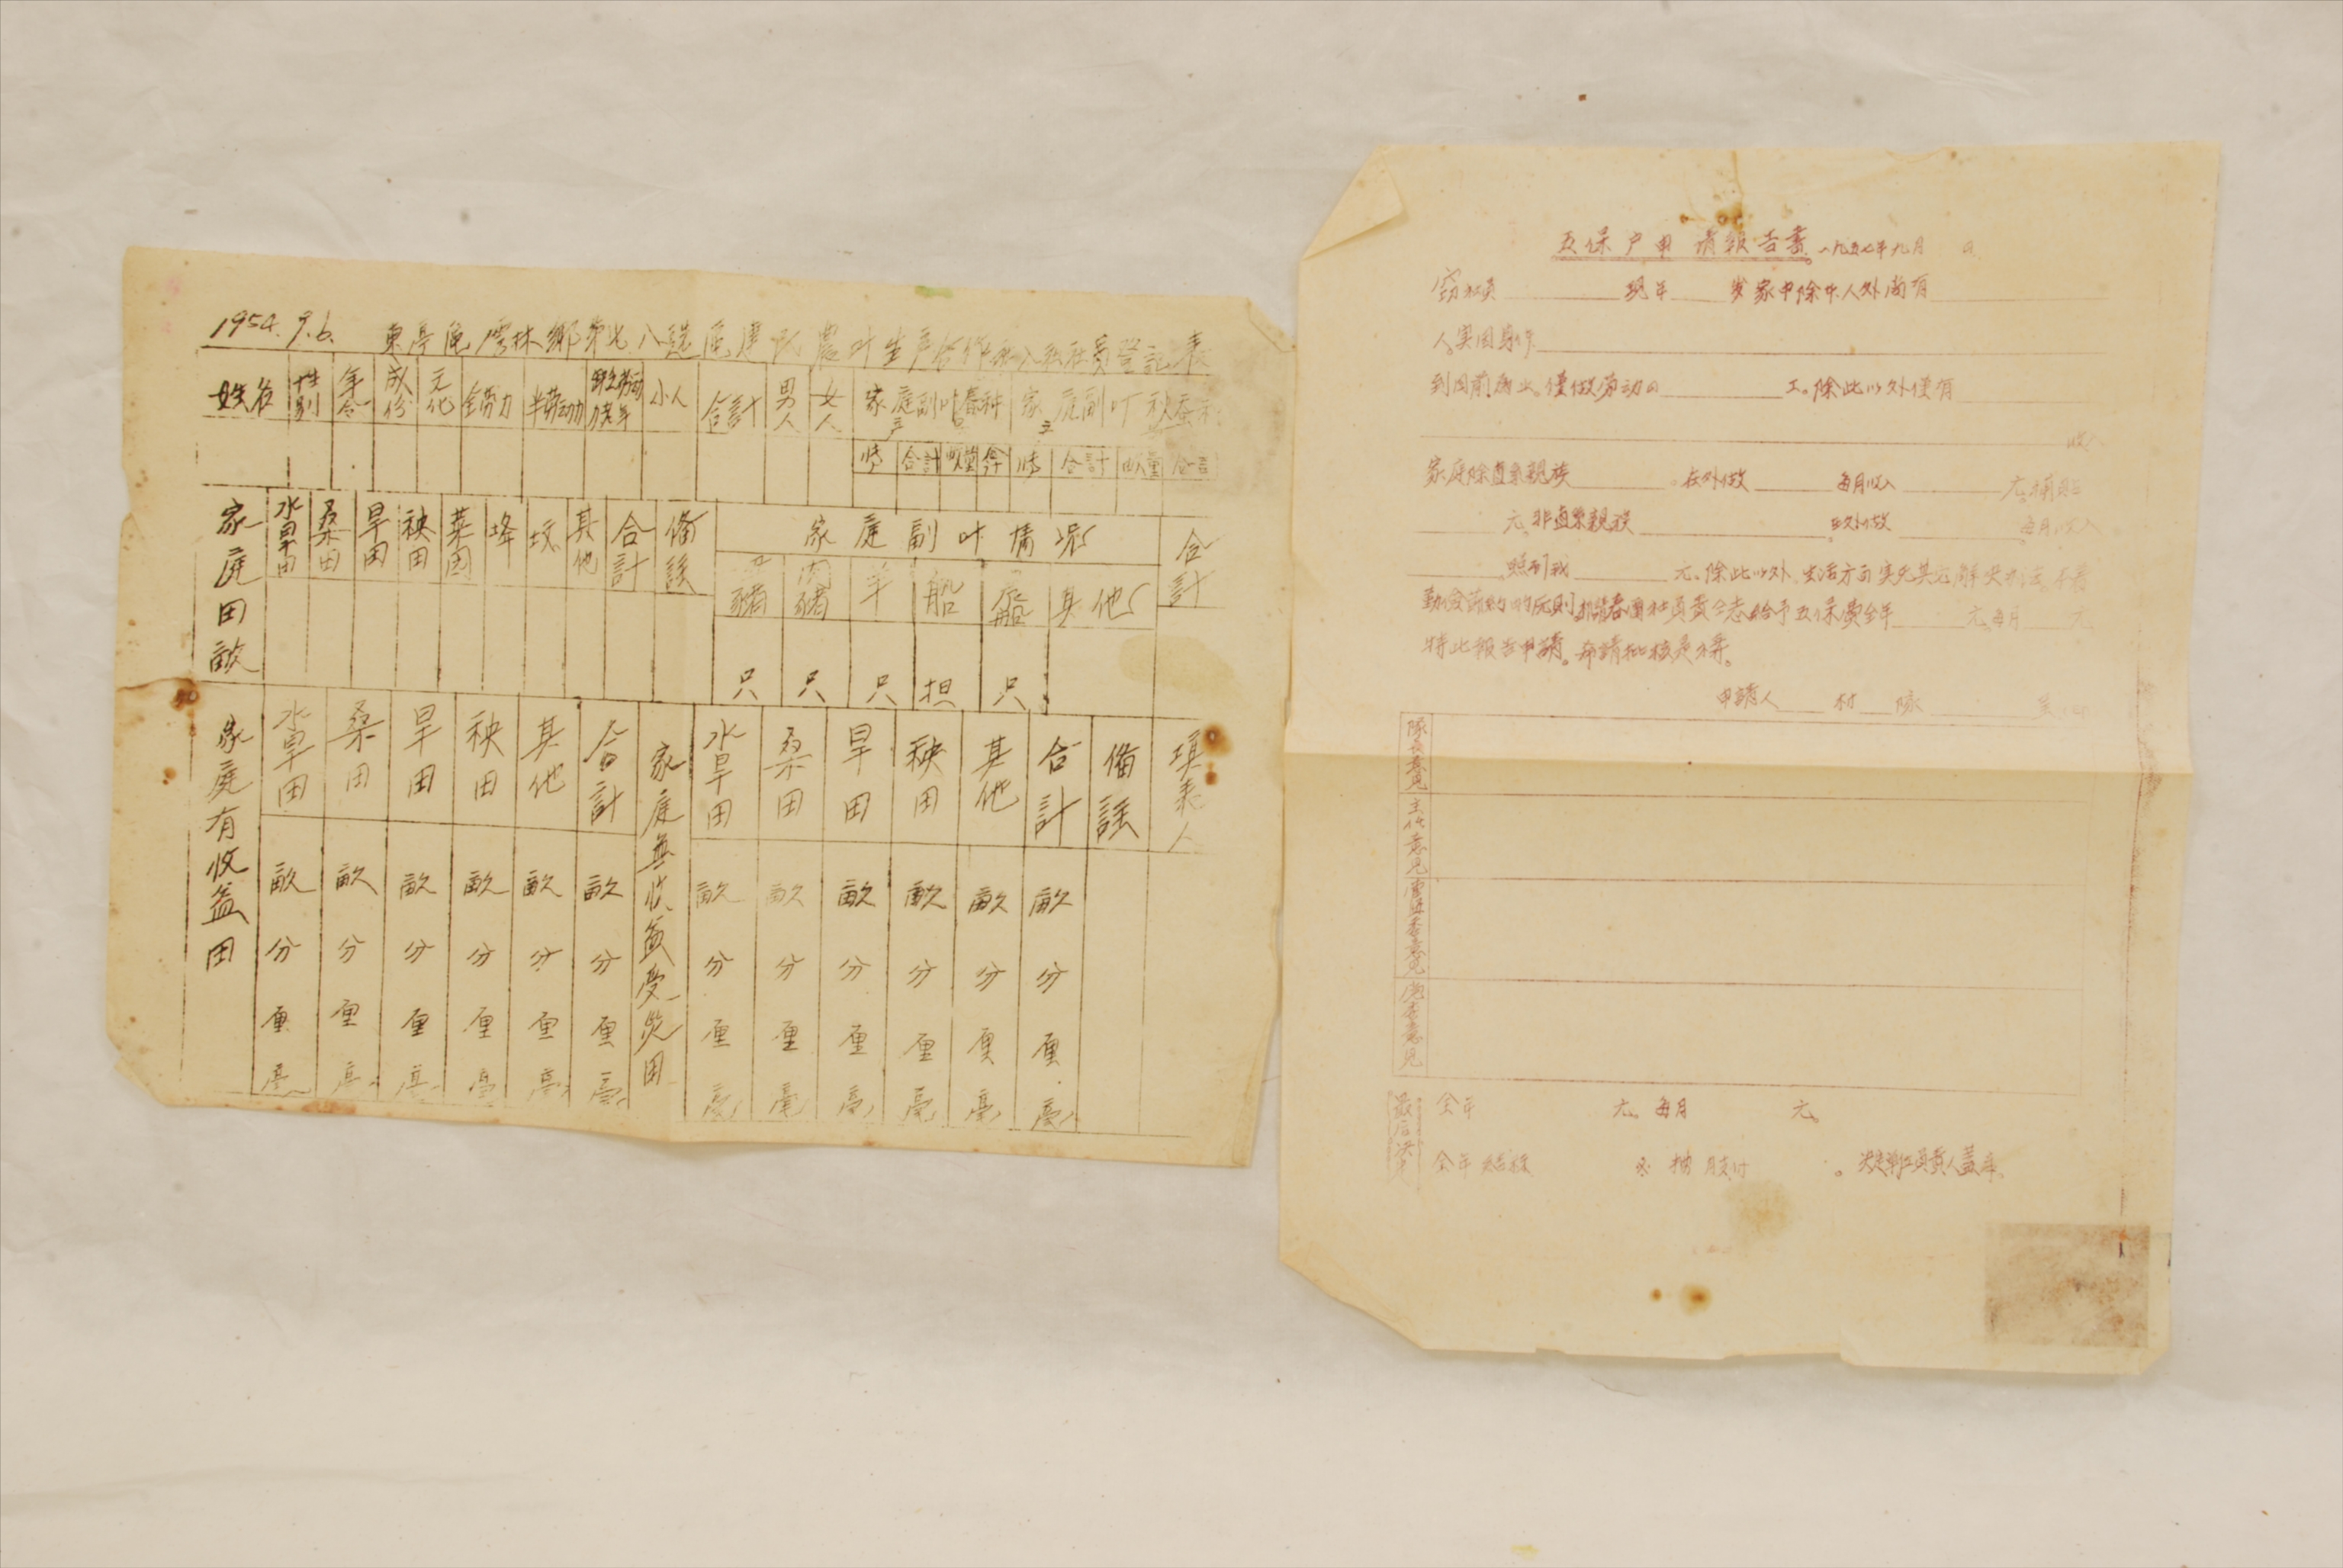 1954.9.6. 東亭區雲林鄉第七八選區建民農叶生产合作社入社社員登記表
姓名 性别 年令 成份 文化 全劳力 半劳动力 缺乏劳动力老年 小人 合計 男人 女人 家庭副叶春种 家庭副叶秋蚕
合計 合計
家庭田畝 水旱田 桑田 旱田 秧田 菜园 埄 坟 其他 合計 備註 家庭副叶情况 合計
豬 肉豬 羊 船 其他
只 只 只 担 只
家庭有收益田 水旱田 桑田 旱田 秧田 其他 合計 家庭無收益受災田 水旱田 桑田 旱田 秧田 其他 合計 備註 填表人
畝 畝 畝 畝 畝 畝 畝 畝 畝 畝 畝 畝
分 分 分 分 分 分 分 分 分 分 分 分
厘 厘 厘 厘 厘 厘 厘 厘 厘 厘 厘 厘
毫 毫 毫 毫 毫 毫 毫 毫 毫 毫 毫 毫
五保户申請報告書 一九五七年九月 日
窃社員 现年 岁家中除本人外尚有
人。実因
到目前為止。僅做劳动日 工。除此以外僅有
收入
家庭除直系親族 。在外做 每月收入 元,補貼
元,非直系親族 。在外做 。每月收入
照顧我 元。除此以外,生活方面実無其他解决办法,本着
勤俭節約的原則,報請春雷社負責同志給予五保费全年 元,每月 元
特此報告申請。希請批核為禱。
申請人 村 隊 呈
隊長意見
主任意見
意見
党委意見
最后决定 全年 元。每月 元。
全年 按月支付 。决定單位負責人蓋章。